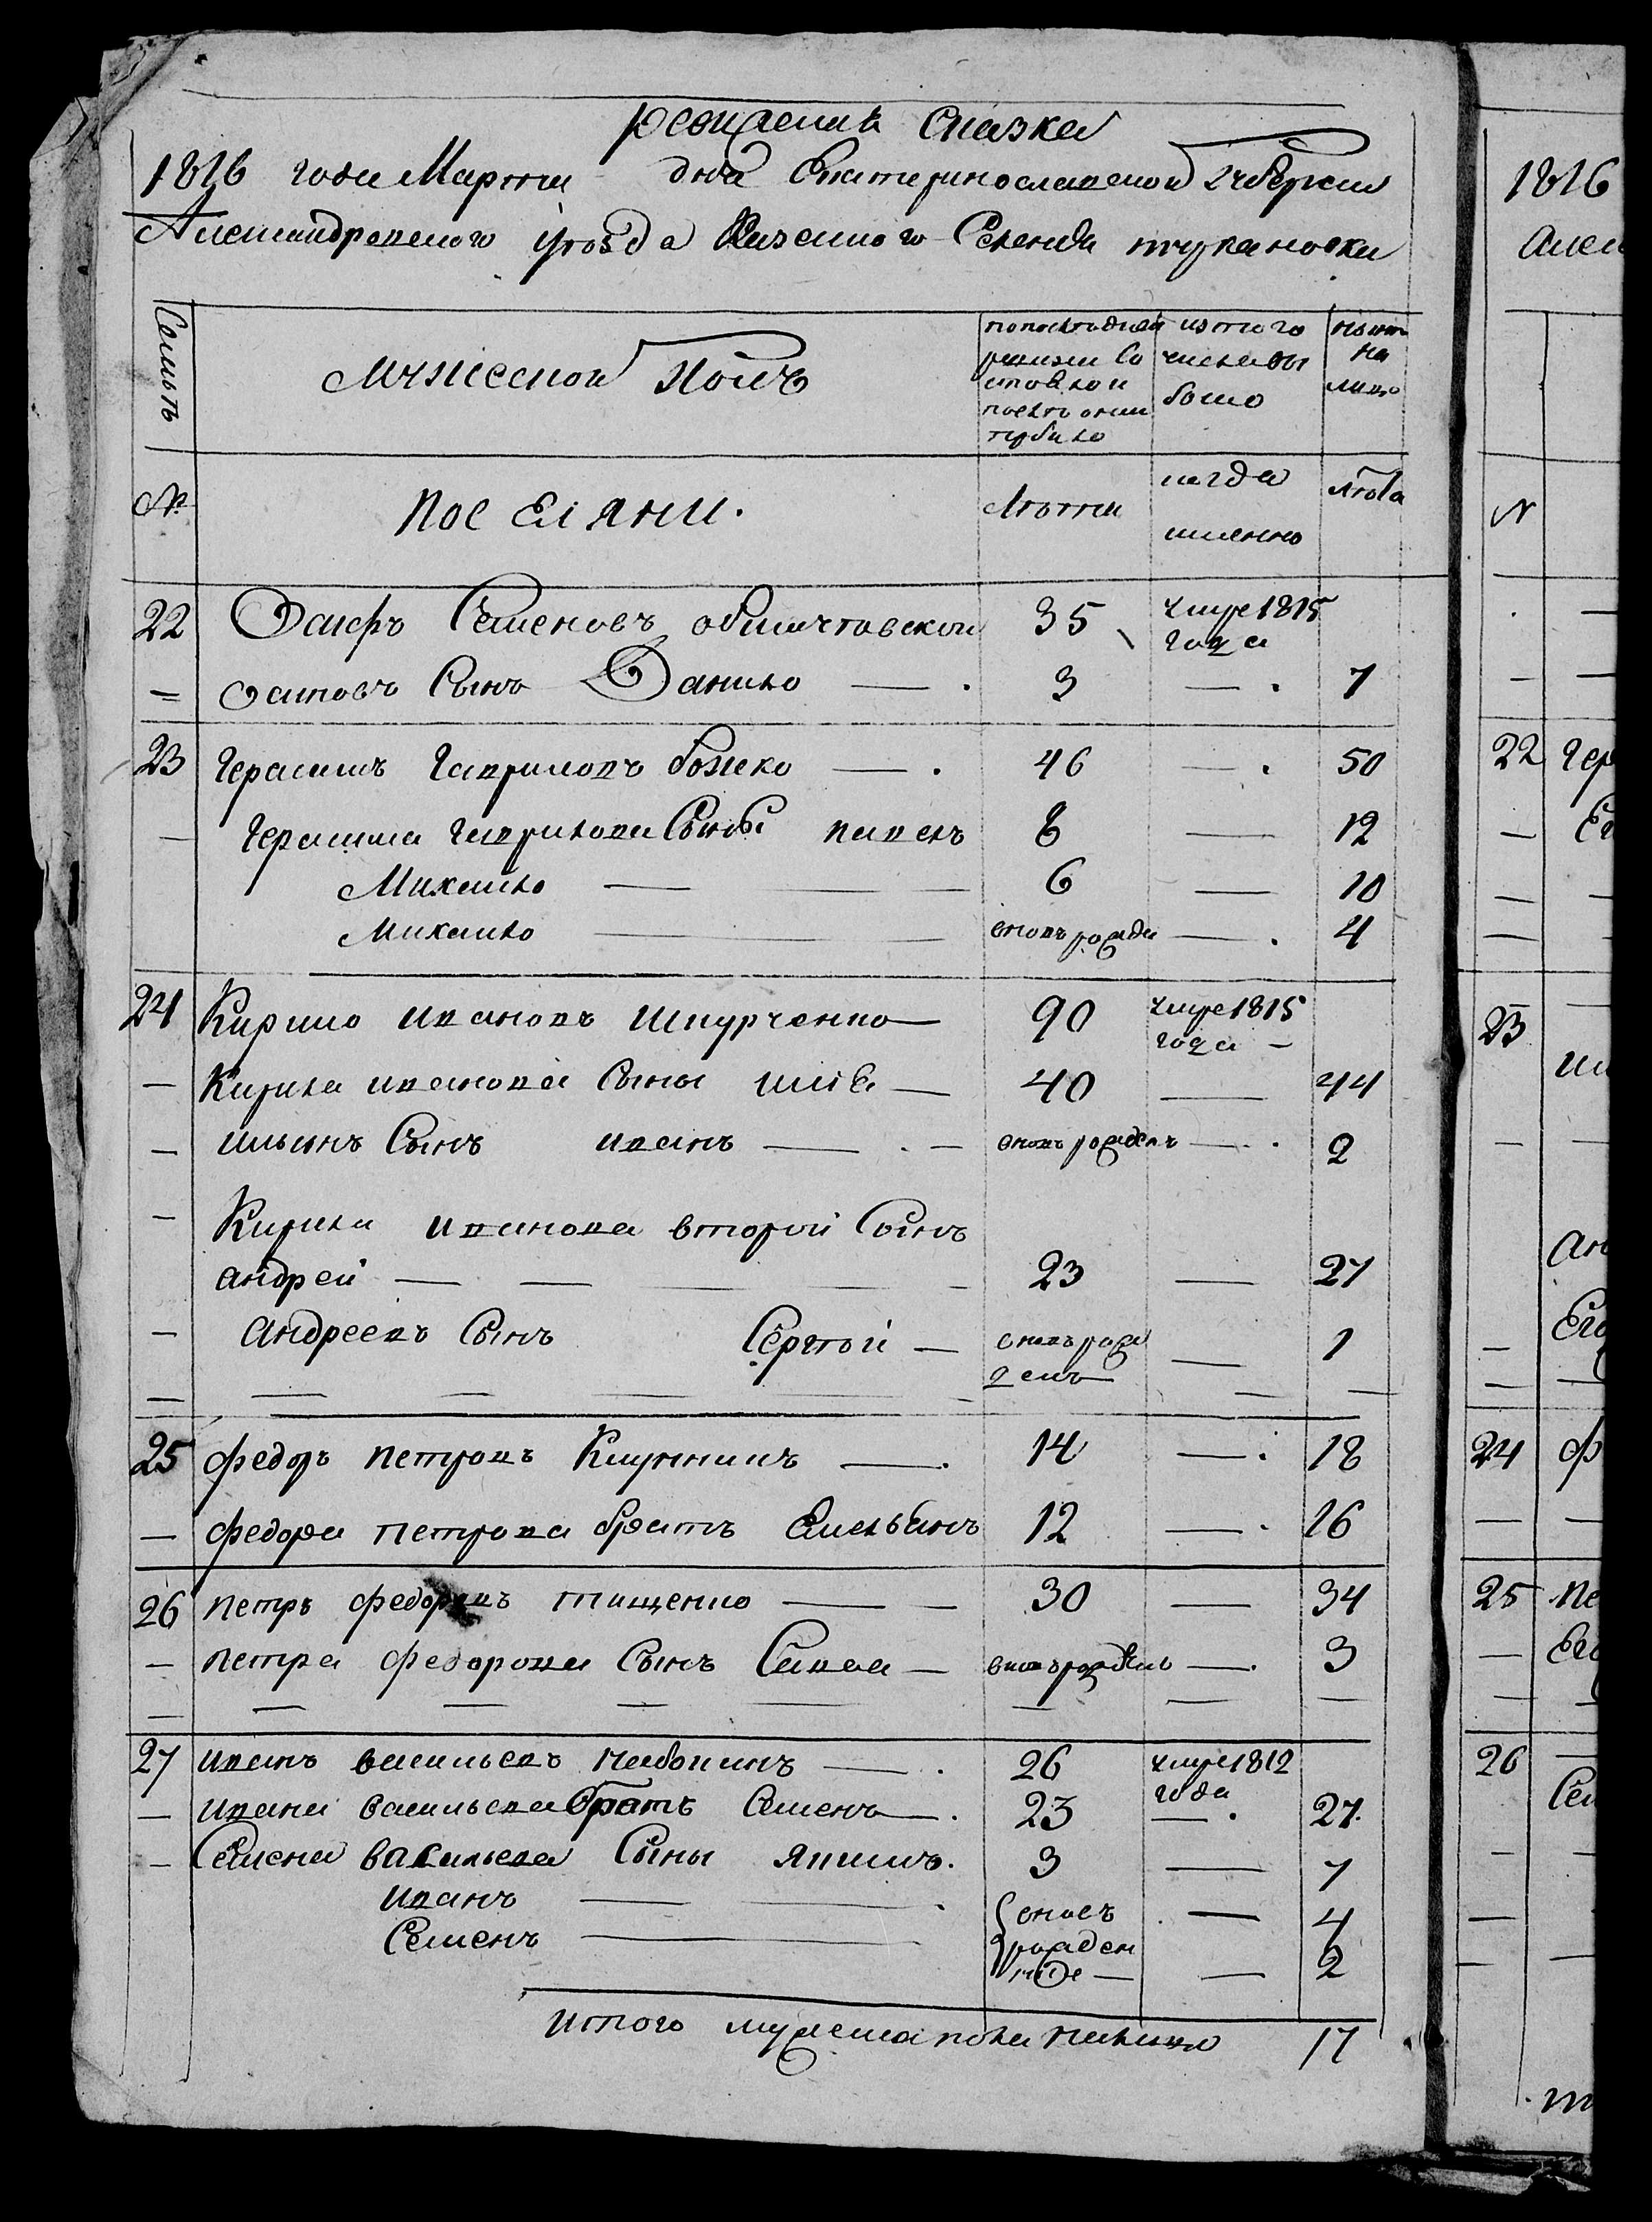 ревизская Сказка
1816 года Марта дня Екатеринославской губернии
Александровского уезда Казенного Селенія туркановки
Семьи
мужеской полъ
попоследней ревизии Состояло и послѣ оний прибыло
изтого числа выбыло
ныне на лицо
№
поселяни.
лѣта
когда именно
лѣта
22 Осифъ Семеновъ 35 умре 1815 года
= осиповъ Сынъ Данило — . 3 — . 7
23 Герасимъ Гавриловъ божко — . 46 — . 50
— Герасима гаврилова Сыны павелъ 8 — 12
Михаило — — 6 — 10
Михаило — — вновь рожде — . 4
24 Кирило ивановъ шпурченко — 90 умре 1815 года —
— Кирила иванова Сыны илія — 40 — 44
— ильинъ Сынъ иванъ — . — вновь рожденъ — . 2
— Кирила иванова второй Сынъ
андрей — — — — — 23 — 27
— андреевъ Сынъ Сергѣй — вновь рожденъ — 1
— — — — — — — —
25 федоръ петровъ — . 14 — . 18
— федора петрова братъ Емельянъ 12 — . 16
26 петръ федоровъ тищенко — — 30 — 34
— петра федорова Сынъ Савва — вновь рожденъ — . 3
— — — — — — — —
27 иванъ васильевъ — . 26 умре 1812 года
— ивана васильева братъ Семенъ — . 23 — . 27.
— Семена васильева Сыны якимъ. 3 — 7
иванъ — — . вновь . — 4
Семенъ — рожденные — — 2
итого мужеска пола налицо 17
1816
Алек
N
— —
— —
22 Гер
— Ег
— —
— —
23
ив
—
ан
Его
— —
24 ф
— —
25 пе
— Его
— —
26 —
Сем
— —
—
— —